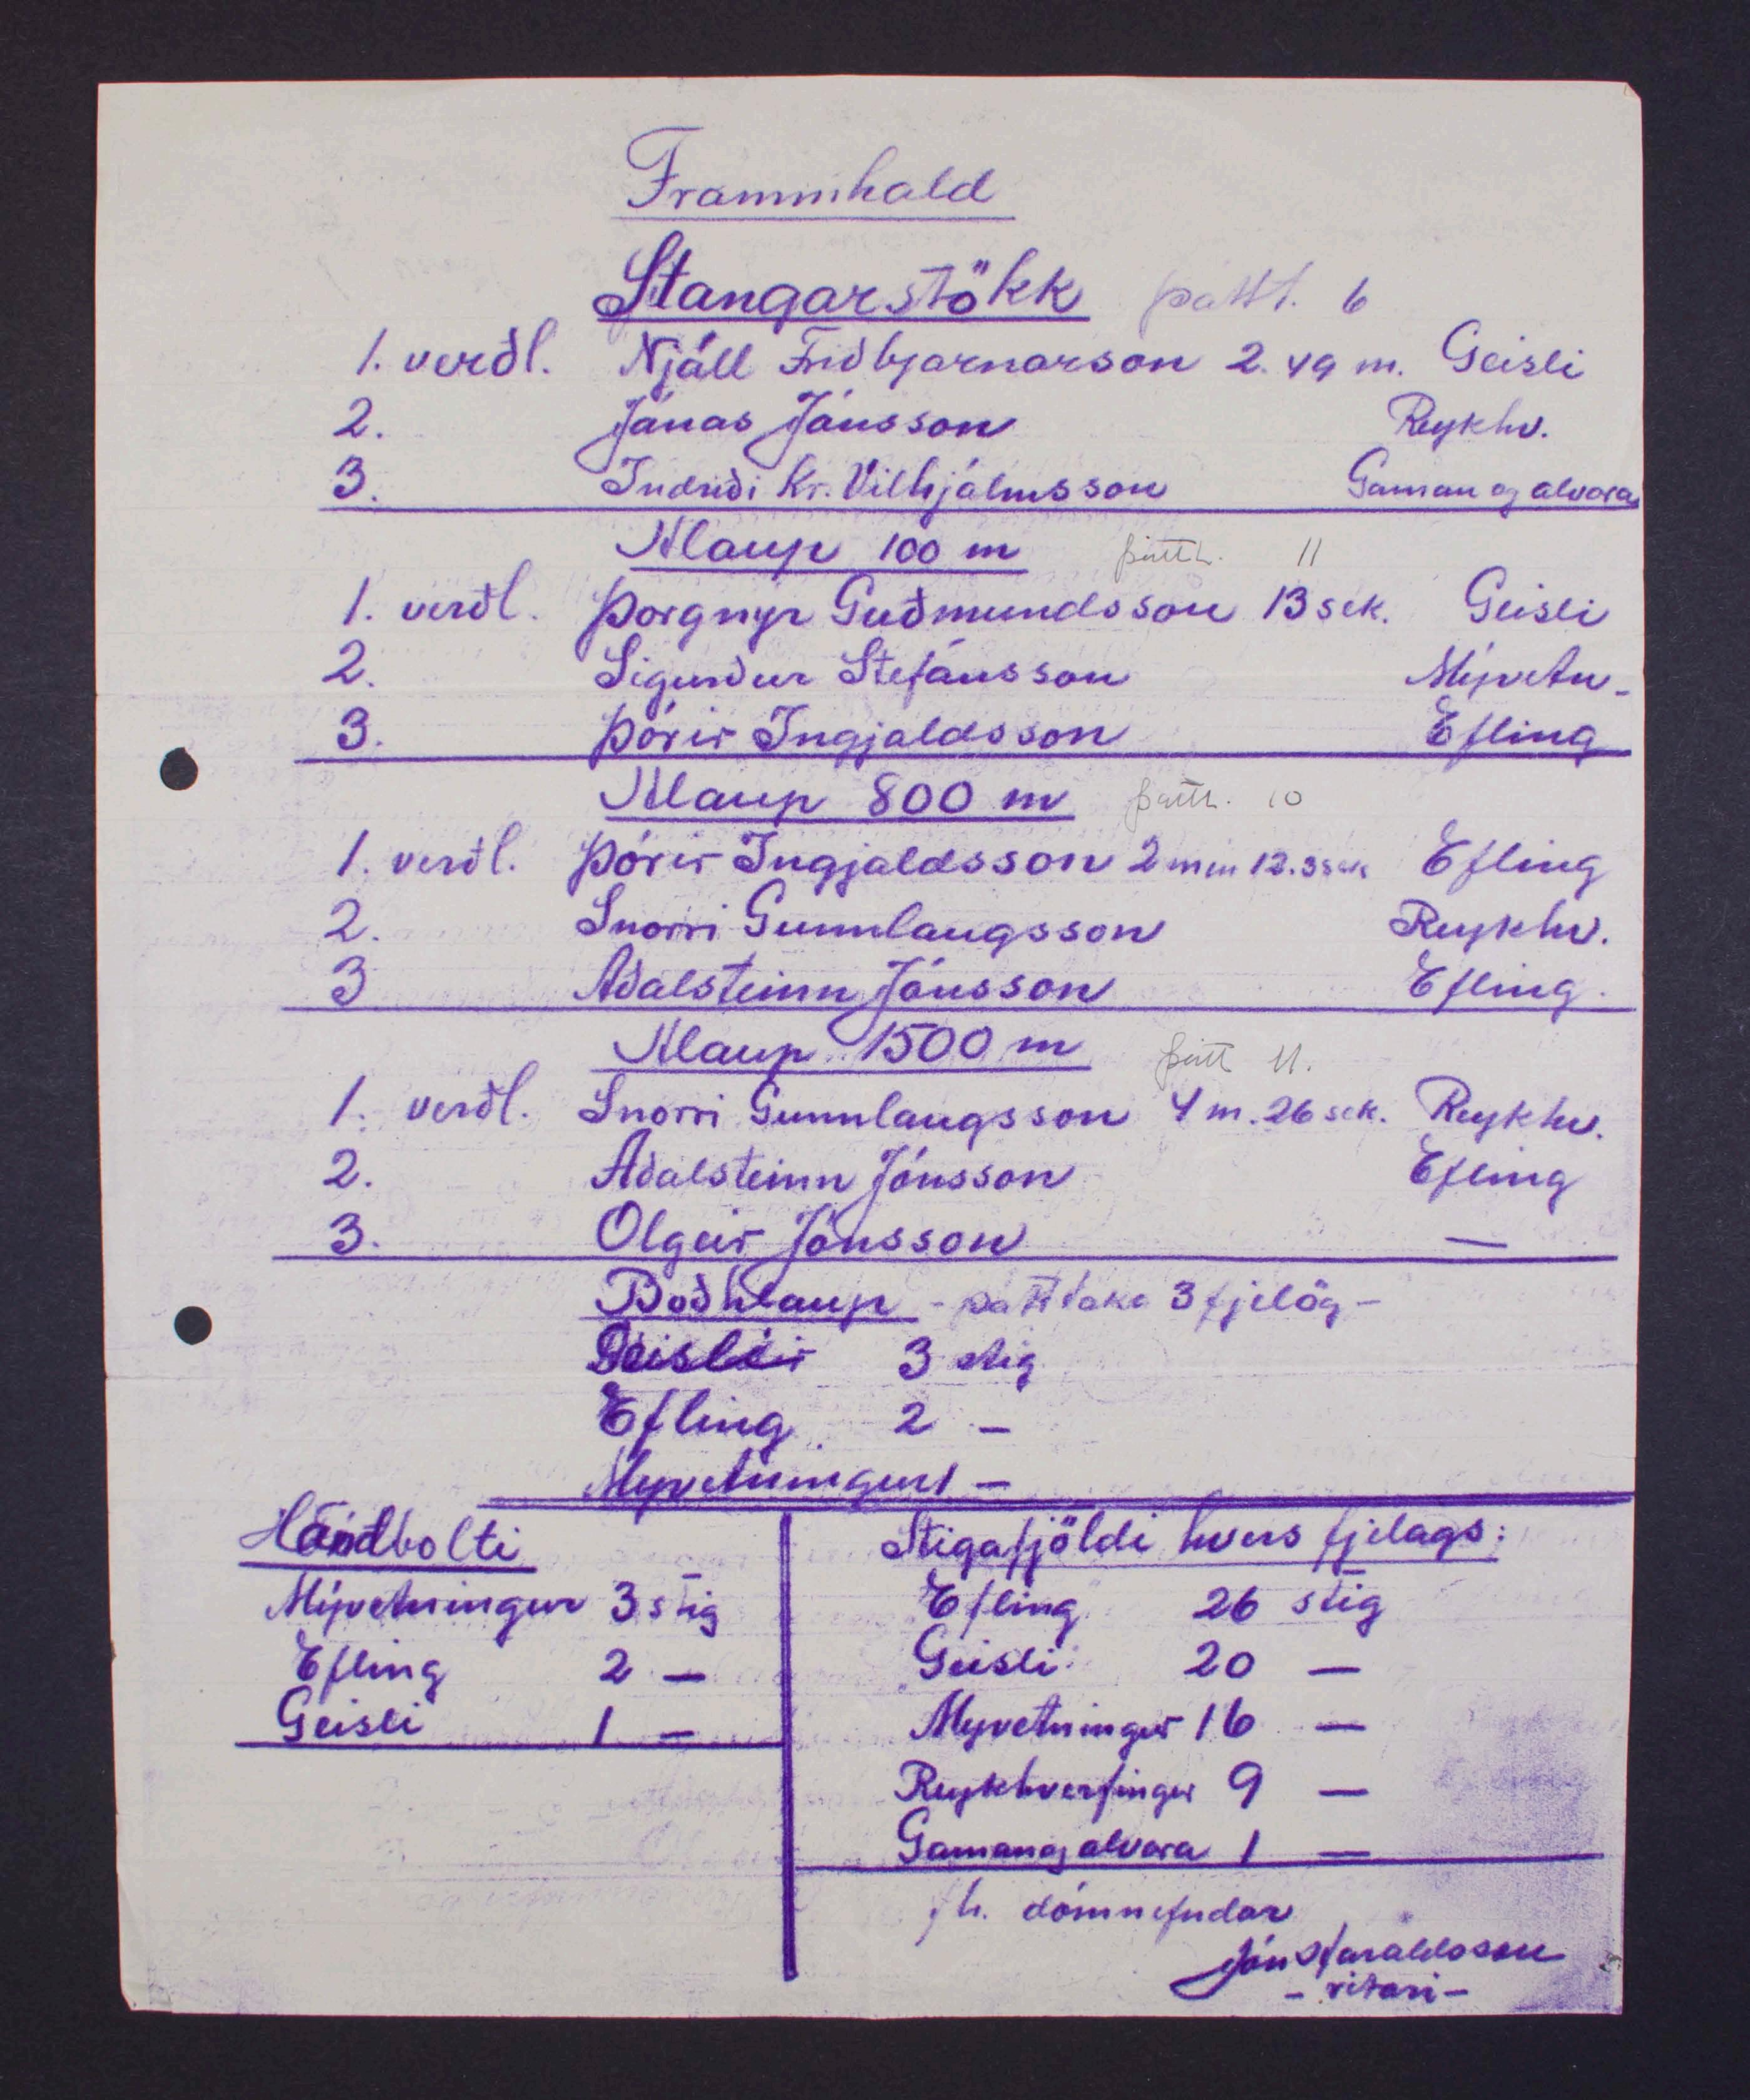 Frammhald
Stangarstökk þáttt. 6
1. verðl. Njáll Friðbjarnarson 2.49 m. Geisli
2. Jónas Jónsson Reykhv.
3. Indriði Kr. Vilhjálmsson Gaman og alvara
Hlaup 100 m þáttt. 11
1. verðl. Þorgnyr Guðmundsson 13 sek. Geisli
2. Sigurður Stefánsson Mývetn-
3. Þórir Ingjaldsson Efling
Hlaup 800 m þáttt. 10
1. verðl. Þórir Ingjaldsson 2 min 12.3 sek Efling
2. Snorri Gunnlaugsson Reykhv.
3 Aðalsteinn Jónsson Efling.
Hlaup 1500 m þátt 11.
1. verðl. Snorri Gunnlaugsson 4 m. 26 sek. Reykhv.
2. Aðalsteinn Jónsson Efling
3. Olgeir Jónsson —
Boðhlaup - þátttaka 3 fjelög -
3 stig
Efling 2 —
Myvetningur 1 —
Handbolti
Mývetningur 3 stig
Efling 2 —
Geisli 1 —
Stigafjöldi hvers fjelags:
Efling 26 stig
Geisli 20 —
Myvetningur 16 —
Reykhverfingur 9 —
Gaman og alvara 1 —
fh. dómnefndar
Jón Haraldsson
- ritari -